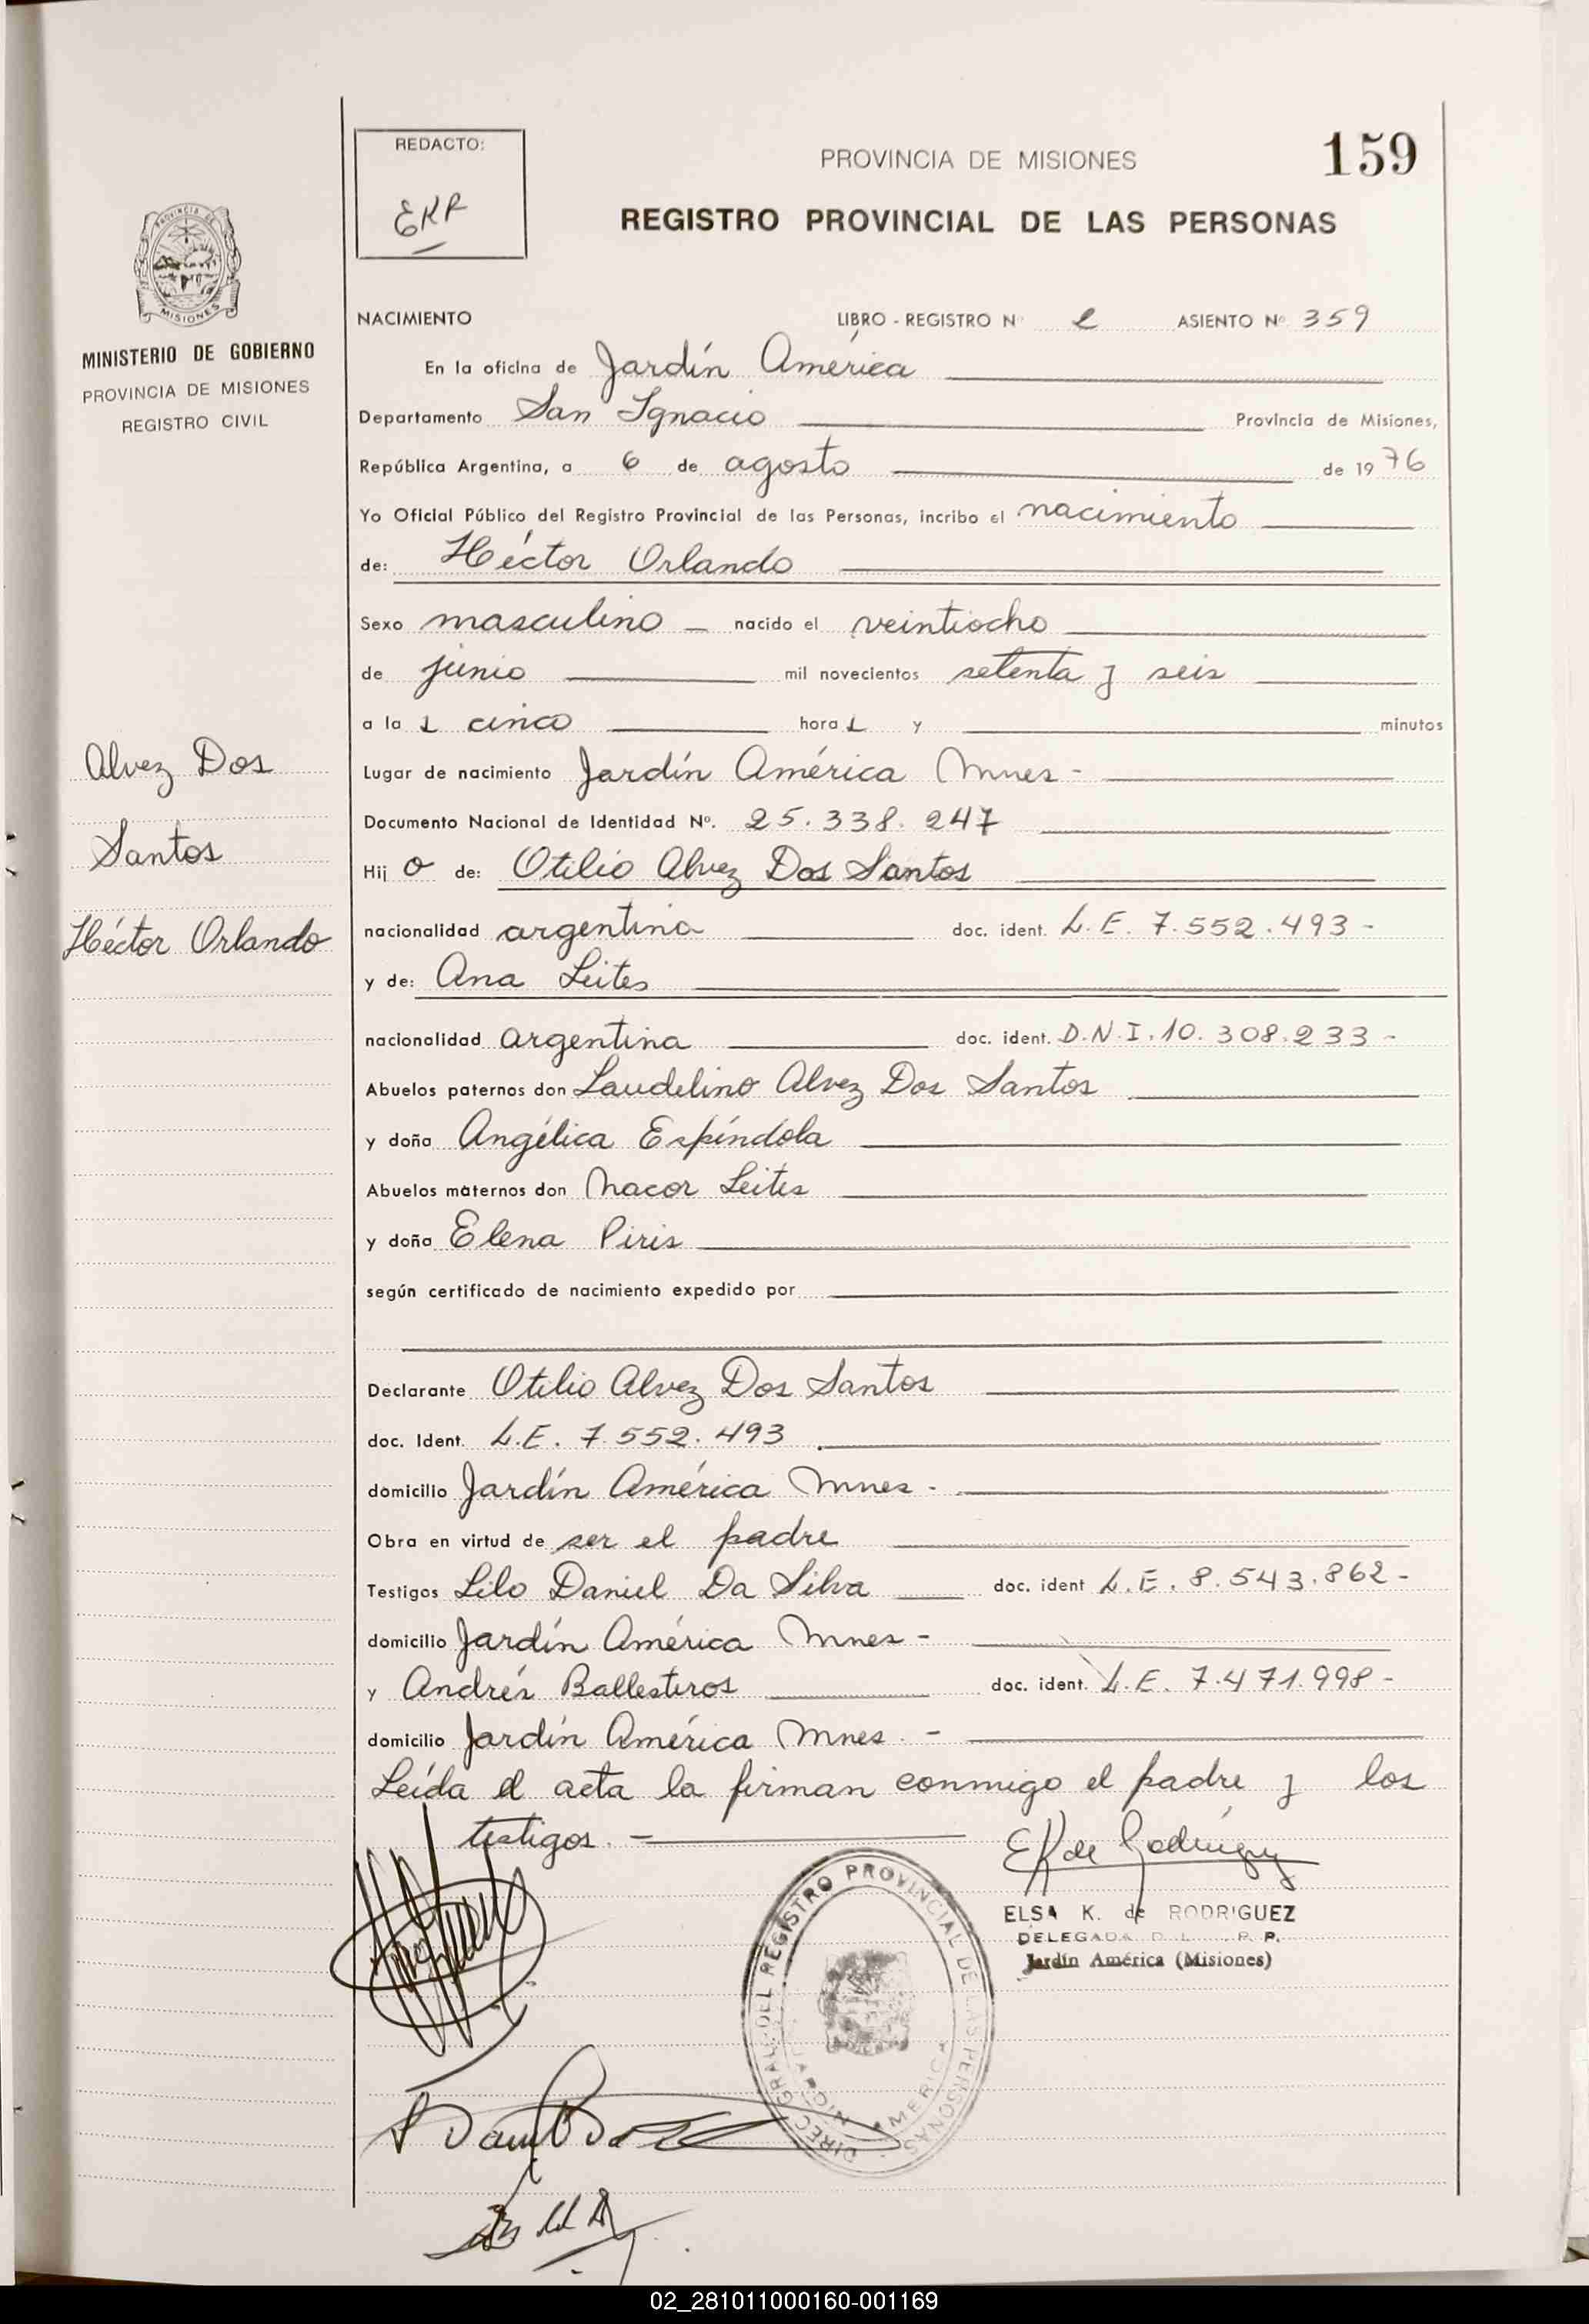 REDACTO:
EKR
PROVINCIA DE MISIONES
159
REGISTRO PROVINCIAL DE LAS PERSONAS
PROVINCIA DE
MISIONES
MINISTERIO DE GOBIERNO
PROVINCIA DE MISIONES
REGISTRO CIVIL
Alvez Dos
Santos
Héctor Orlando
NACIMIENTO LIBRO - REGISTRO Nº 2 ASIENTO Nº 359
En la oficina de Jardín América
Departamento San Ignacio Provincia de Misiones,
República Argentina, a 6 de agosto de 1976
Yo Oficial Público del Registro Provincial de las Personas, incribo el nacimiento
de: Héctor Orlando
Sexo masculino nacido el veintiocho
de junio mil novecientos setenta y seis
a la s cinco hora s y minutos
Lugar de nacimiento Jardín América Mnes-
Documento Nacional de Identidad Nº. 25.338.247
Hij o de: Otilio Alvez Dos Santos
nacionalidad argentina doc. ident. L.E. 7.552.493-
y de: Ana Leites
nacionalidad argentina doc. ident. D.N.I. 10.308.233-
Abuelos paternos don Laudelino Alvez Dos Santos
y doña Angélica Espíndola
Abuelos maternos don Nacor Leites
y doña Elena Piris
según certificado de nacimiento expedido por
Declarante Otilio Alvez Dos Santos
doc. Ident. L.E. 7.552.493
domicilio Jardín América Mnes-
Obra en virtud de ser el padre
Testigos Lilo Daniel Da Silva doc. ident L.E. 8.543.862-
domicilio Jardín América Mnes-
y Andrés Ballesteros doc. ident. L.E. 7.471.998-
domicilio Jardín América Mnes.-
Leída el acta la firman conmigo el padre y los
testigos.-
EK de Rodríguez
ELSA K. de RODRIGUEZ
DELEGADA
Jardín América (Misiones)
DIREC. GRAL. DEL REGISTRO PROVINCIAL DE LAS PERSONAS
AMERICA
02_281011000160-001169